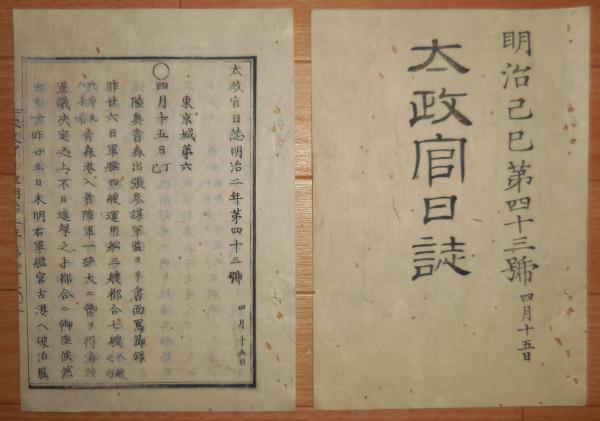 明治己巳第四十三號 四月十五日
太政官日誌
太政官日誌明治二年第四十三號 四月十五日
東京城第六
〇四月十五日丁巳
陸奥青森出張參謀軍監ヨリ書面寫節録
昨廿六日軍艦四艘運用船三艘都合七艘
青森港入着陸軍一統大ニ勢ヲ得海陸
軍議決定之上不日進擊之手都合ニ御座候然
昨廿五日未明右軍艦宮古港ヘ碇泊